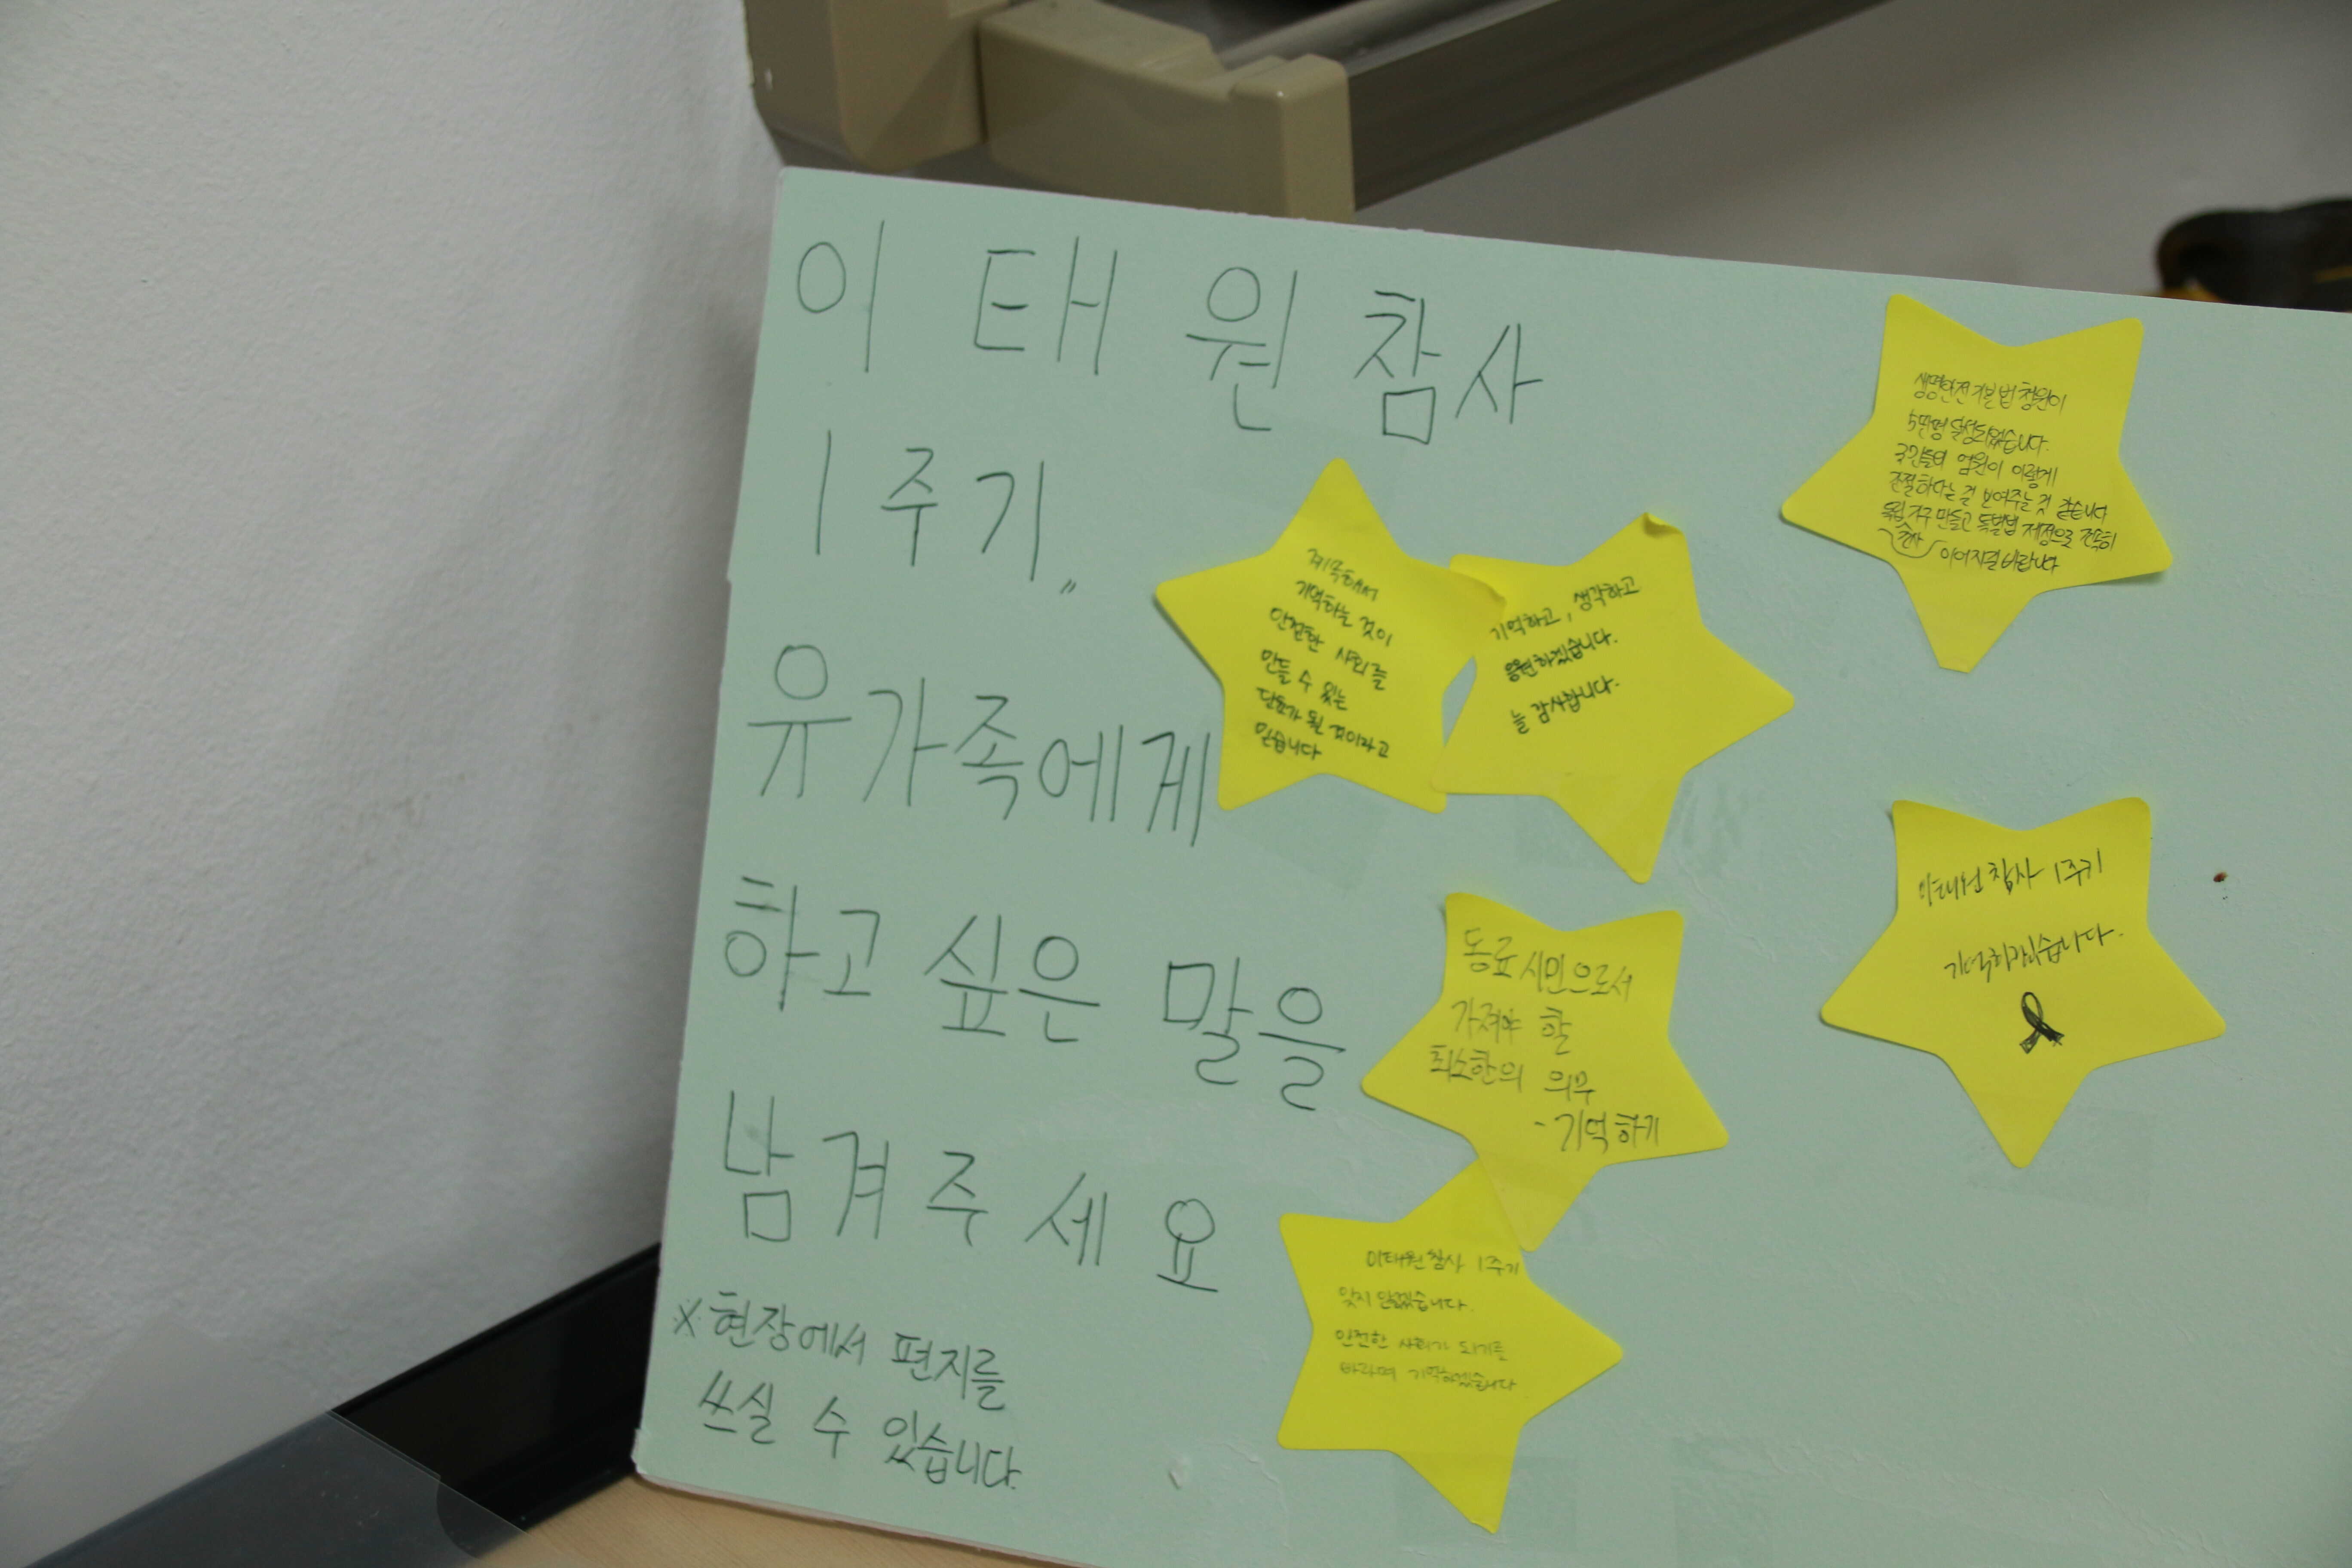 이태원 참사
1주기,,
유가족에게
하고 싶은 말을
남겨주세요
※ 현장에서 편지를
쓰실 수 있습니다.
기억하는 것이
안전한 사회를
만들 수 있는
단초가 될 것이라고
믿습니다
기억하고, 생각하고
응원하겠습니다.
늘 감사합니다.
생명안전기본법 청원이
5만명 달성되었습니다.
국민들의 염원이 이렇게
간절하다는 걸 보여주는 것 같습니다
독립 기구 만들고 특별법 제정으로 건속히
이어지길 바랍니다
동료 시민으로서
가져야 할
최소한의 의무
- 기억하기
이태원 참사 1주기
기억하겠습니다.
이태원 참사 1주기
잊지 않겠습니다.
안전한 사회가 되기를
바라며 기억하겠습니다